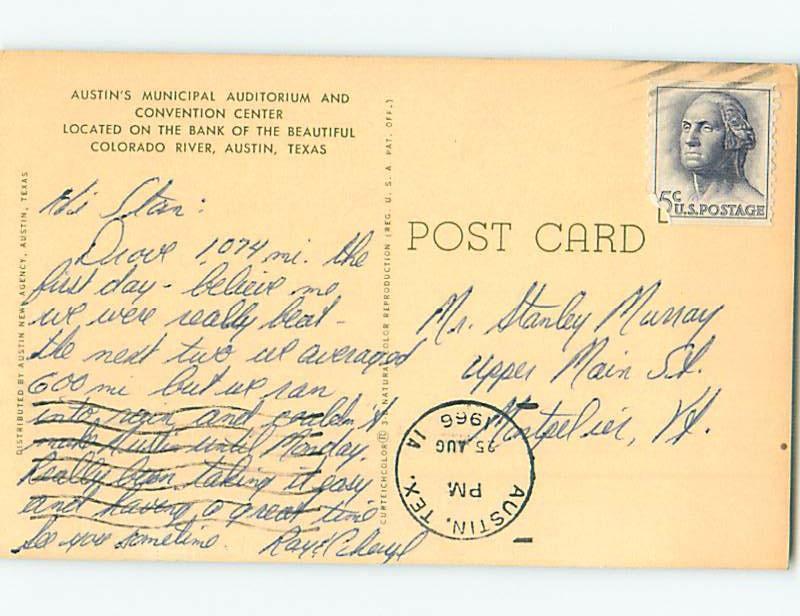 AUSTIN'S MUNICIPAL AUDITORIUM AND
CONVENTION CENTER
LOCATED ON THE BANK OF THE BEAUTIFUL
COLORADO RIVER, AUSTIN, TEXAS
DISTRIBUTED BY AUSTIN NEWS AGENCY, AUSTIN, TEXAS
Hi Stan:
Drove 1,074 mi. the
first day - believe me
we were really beat -
the next two we averaged
600 mi but we ran
into rain and couldn't
make Austin until Monday.
Really been taking it easy
and having a great time
See you sometime. Ray & Cheryl
CURTEICHCOLOR® 3-D NATURAL COLOR REPRODUCTION (REG. U. S. A. PAT. OFF.)
POST CARD
5c
U.S.POSTAGE
Mr. Stanley Murray
Upper Main St.
Montpelier, Vt.
AUSTIN, TEX.
PM
25 AUG
1966
1A